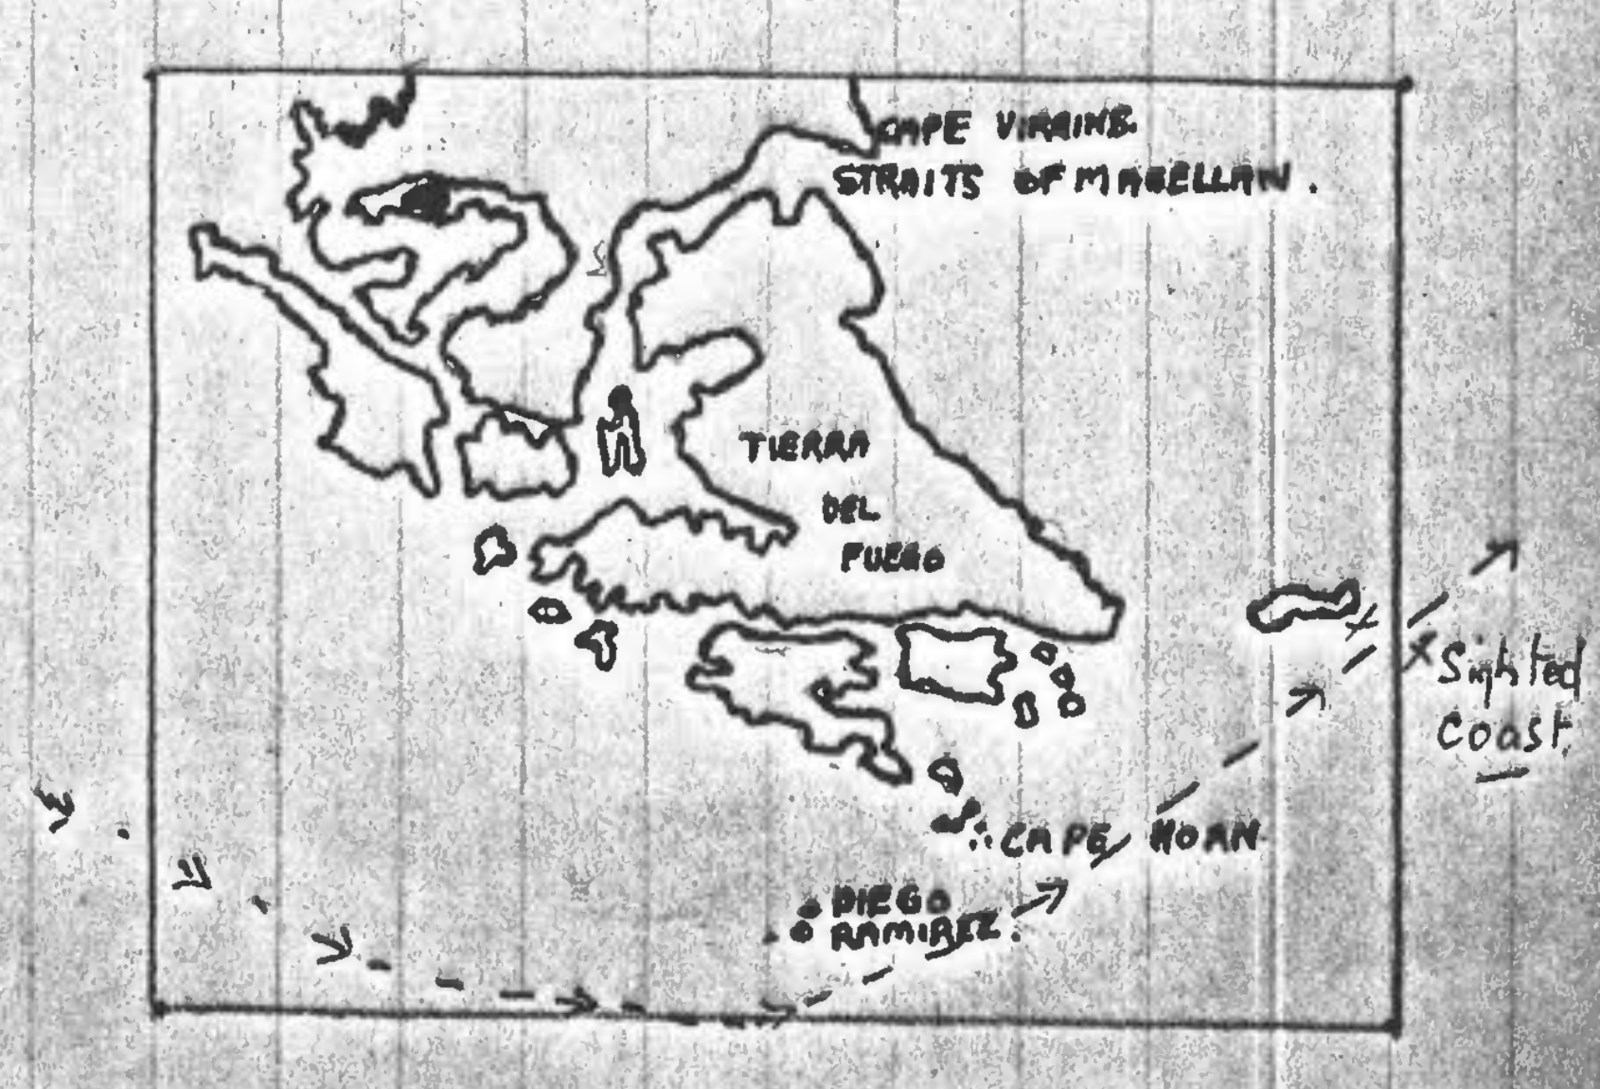 CAPE VIRGINS.
STRAITS OF MAGELLAN.
TIERRA
DEL
FUEGO
x Sighted
Coast.
CAPE HORN
DIEGO
RAMIREZ.